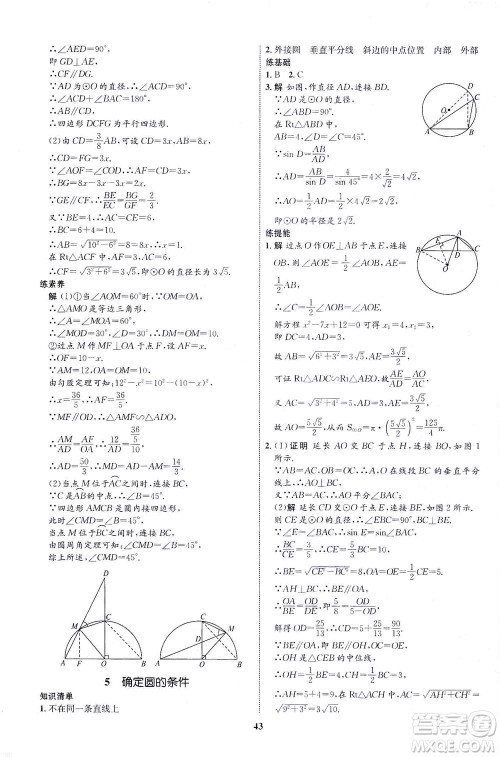 ∴∠AED=90°,
即 GD⊥AE,
∴CF∥DG.
∵AD 为⊙O 的直径,
∴∠ACD=∠BAC=180°.
∴四边形 DCFG 为平行四边形.
(2)由 CD=3/8AB,可设 CD=3x,AB=8x,
∴CD=FG=3x.
∵∠AOF=∠COD,∴AF=CD=3x.
∴BG=8x-3x-3x=2x.
∵GE∥CF,
∴BE/EC=BG/GF=2/3.
又∵BE=4,∴AC=CE=6.
∴BC=6+4=10.
∴AB=√(10²-6²)=8=8x.∴x=1.
在 Rt△ACF 中,AF=3,AC=6,
∴CF=√(3²+6²)=3√5.
练素养
解 (1)①当∠AOM=60°时,∵OM=OA,
∴△AMO 是等边三角形,
∴∠MOD=30°,∠D=30°,
②过点 M 作 MF⊥OA 于点 F,
设 AF=x,∴OF=12-x.
∵AM=12,OA=OM=12,
由勾股定理可知:
∴x=25/6.∴AF=25/6.
∵MF∥OD,∴△AMF∽△ADO.
(2)当点 M 位于AC之间时,连接 BC,
∵C 是AB的中点,∴∠B=45°.
∵四边形 AMCB 是圆内接四边形,
此时∠CMD=∠B=45°.
当点 M 位于BC之间时,连接 BC,
由圆周角定理可知:∠CMD=∠B=45°.
综上所述,∠CMD=45°.
D
M C
A F O B
C
M
D
A O B
5 确定圆的条件
知识清单
1.不在同一条直线上
2.外接圆 垂直平分线 斜边的中点位置 内部 外部
练基础
1.B 2.C
3.解 如图,作直径 AD,连接 BD.
∵AD 是⊙O 的直径,
∴∠ABD=90°.
在 Rt△ABD 中,
BA=4,∠D=∠C=45°,
∵sin D=AB/AD,
∴AD=AB/sin D=4/sin 45°=4×2/√2=4√2.
∴⊙O 的半径是 2√2.
练提能
1.解 过点 O 作 OE⊥AB 于点 E,连接
AOB,则∠AOE=1/2∠AOB,
∵∠C=1/2∠AOB,∴∠AOE=∠C.
解方程 x²-7x+12=0,可得 DC=4,AD=3.
故 AB=√(6²+3²)=3√5,AE=3√5/2,
故 AO=5√5/2,故 S⊙O=(5√5/2)²π=125/4π.
2.(1)证明 延长 AO 交 BC 于点 H,连接 BO,如图 1
所示.
∵AB=AC,OB=OC,∴A,O 在线段 BC 的垂直平分
线上.∴AO⊥BC.
又∵AB=AC,∴AO 平分∠BAC.
(2)解 延长 CD 交⊙O 于点 E,连接 BE,如图 2 所示.
则 CE 是⊙O 的直径,
∴∠EBC=90°,BC⊥BE.
∵∠E=∠BAC,∴sin E=sin∠BAC.
∴BC/CE=3/5.∴CE=5/3BC=10.
∴BE=√(CE²-BC²)=8,OA=OE=1/2CE=5.
∵AH⊥BC,∴BE∥OA.
∴OA/BE=OD/DE,即5/8=OD/(5-OD).
解得 OD=25/13.∴CD=5+25/13=90/13.
∵BE∥OA,即 BE∥OH,OC=OE,
∴OH 是△CEB 的中位线.
∴OH=1/2BE=4,CH=1/2BC=3.
∴AH=5+4=9.
43
答案圈
MXQE.COM